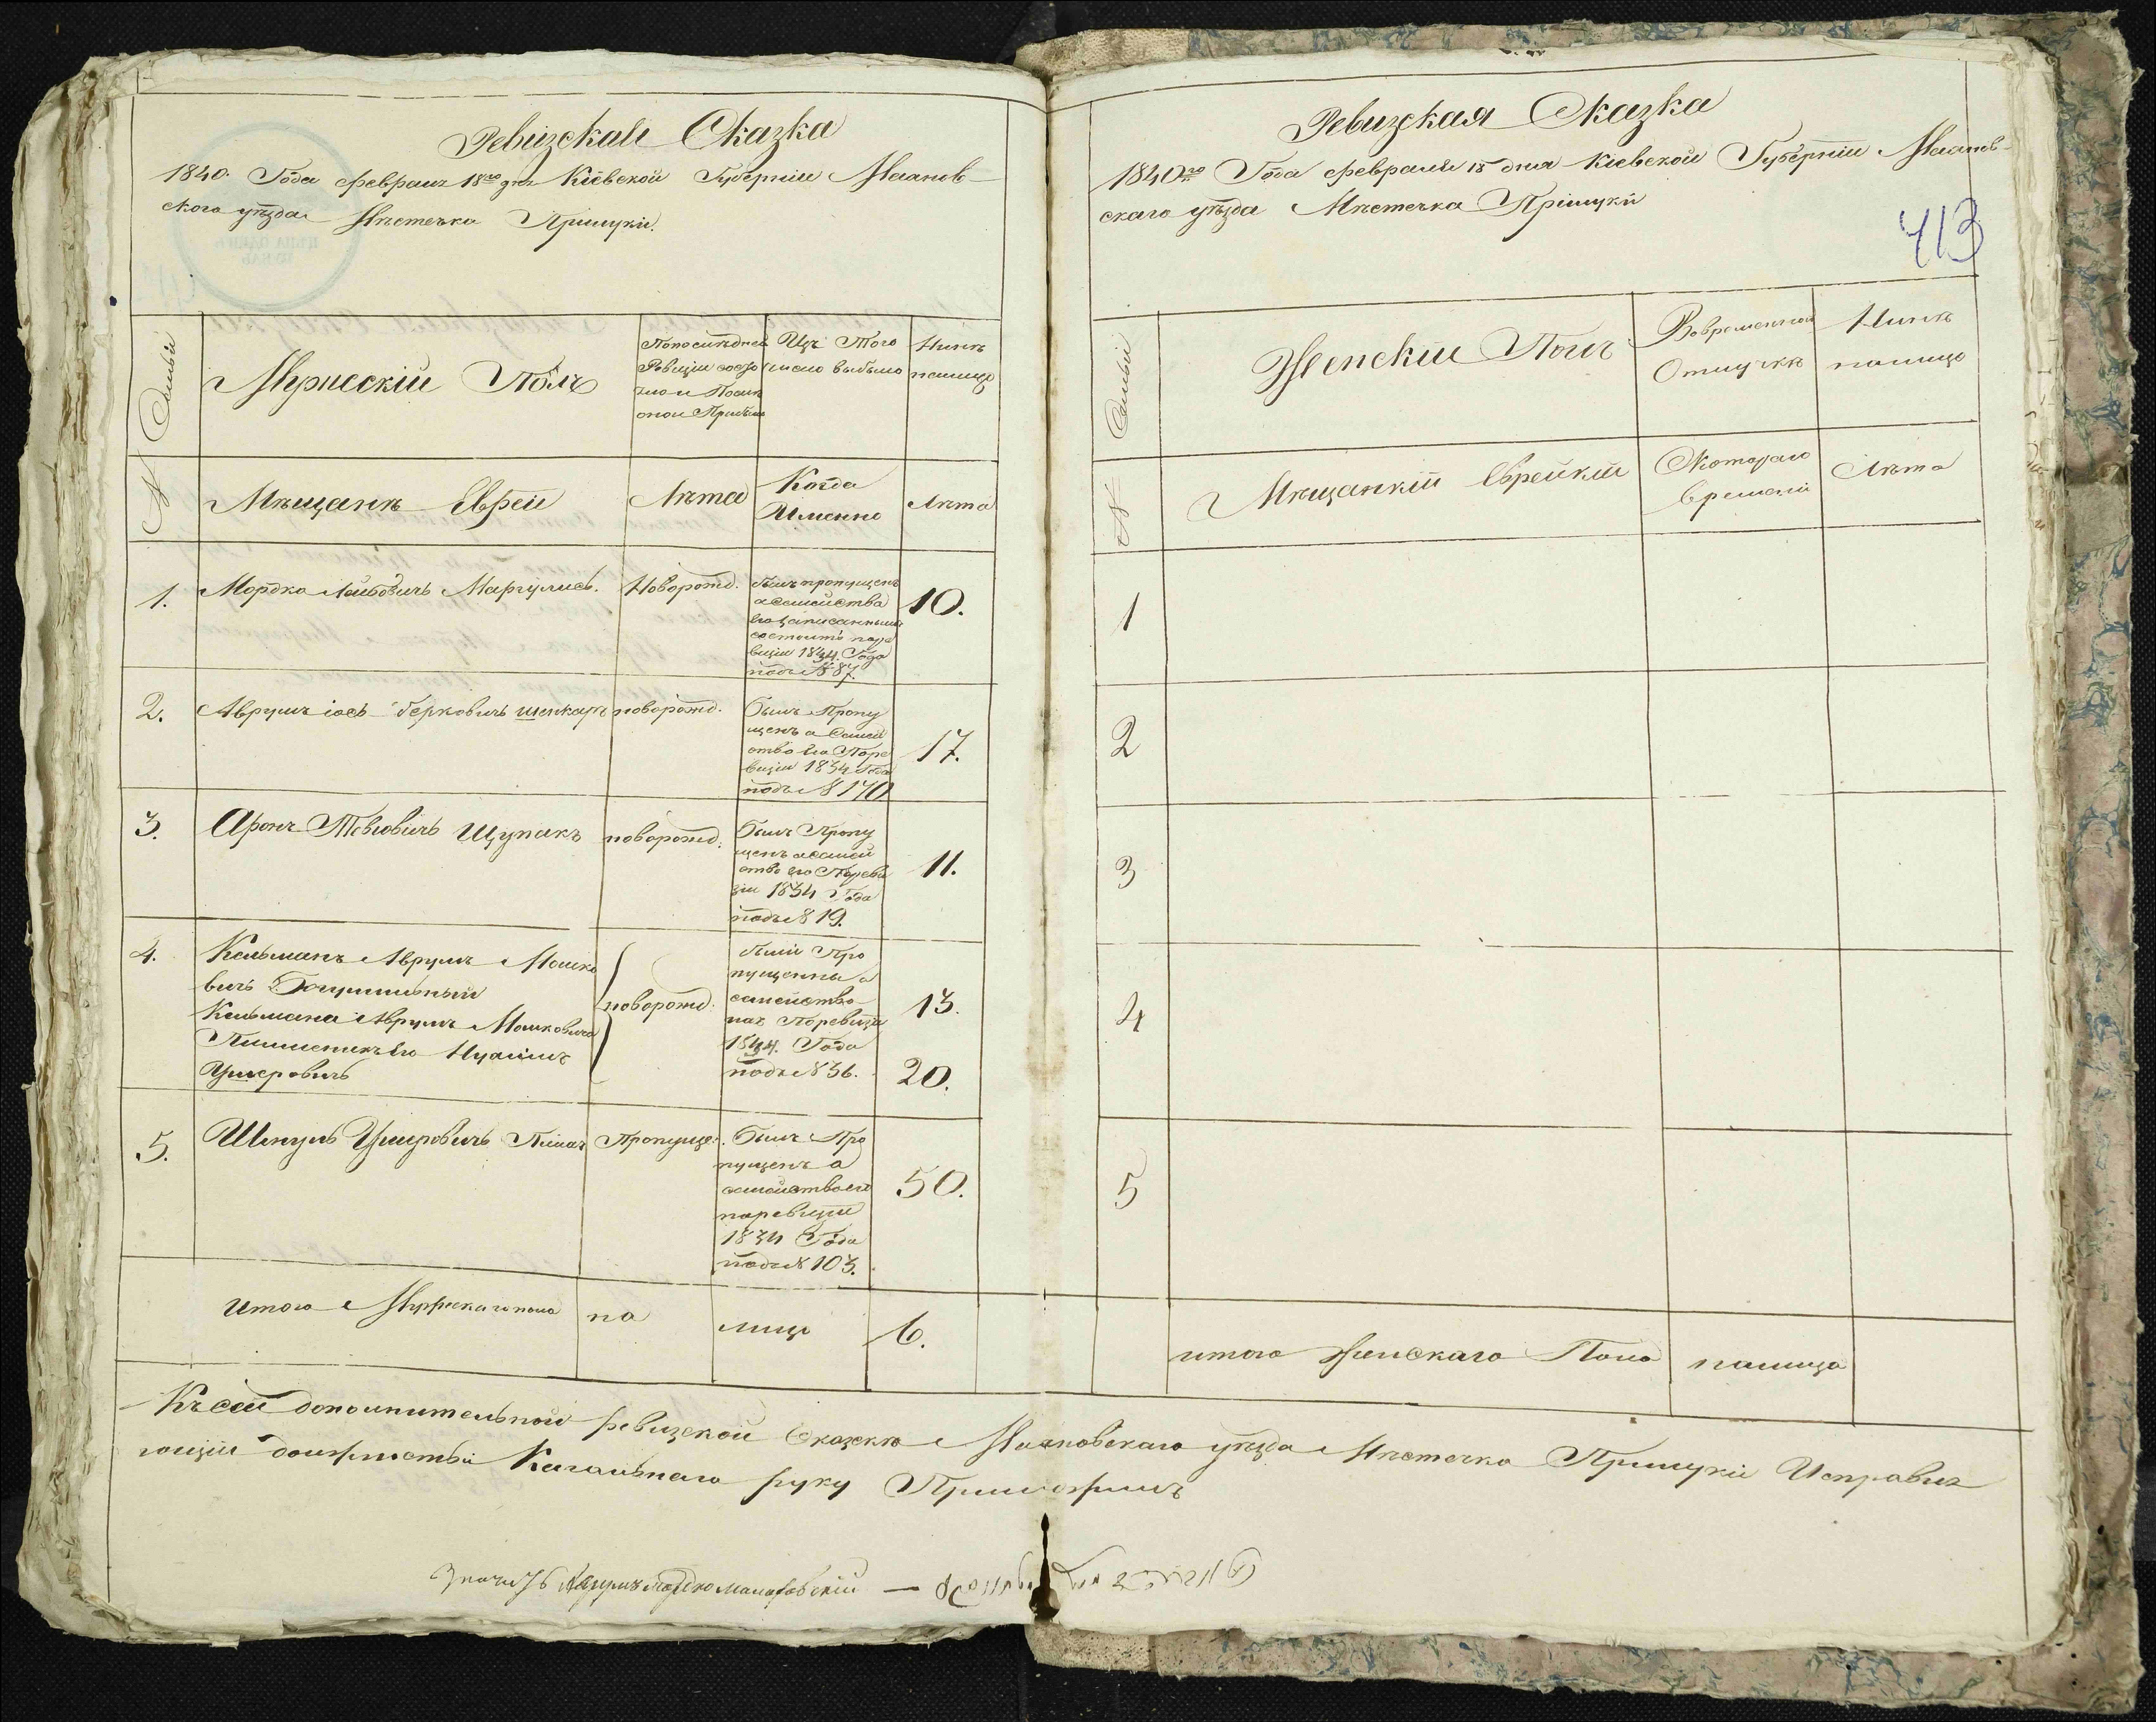 Ревизская Сказка
1840. Года февраля 18го дня Кіевской Губерніи Махнов-
ского уѣзда Мѣстечка Прилуки.
№ Семьи
Мужескій Полъ
По последней
Ревизіи состо
яло и После
оной Прибыло
Изъ Того
числа выбыло
Нынѣ
налицо
№
Мѣщанѣ Евреи
Лѣта
Когда
Именно
Лѣта
1.
Мордко Лейбовичъ Маргулисъ.
Новорожд.
былъ пропущенъ
а Семейства
его записанными
состоитъ поре
визіи 1834. Года
подъ № 87.
10.
2.
Аврумъ іось Берковичъ шенкаръ
новорожд.
былъ Пропу
щенъ а Семей
ство его Поре
визіи 1834 Года
подъ № 170
17.
3.
Аронъ Тевіовичъ Щупакъ
новорожд.
былъ Пропу
щенъ а семей
ство его Пореви
зіи 1834 Года
подъ № 19.
11.
4.
Кельманъ Аврумъ Мошко
вичъ
Кельмана Аврумъ Мошковича
Племеникъ его
Ушеровичъ
новорожд.
были Про
пущенны а
семейство
ихъ Поревизіи
1834. Года
подъ № 36.
13.
20.
5.
Шмуль Умировичъ
Пропуще.
былъ Про
пущенъ а
семейство его
поревизіи
1834 Года
подъ № 103.
50.
Итого Мужескаго пола
на
лицо
6.
Ревизская Сказка
1840го Года февраля 18 дня Кіевской Губерніи Махнов-
скаго уѣзда Мѣстечка Прілуки
413
№ Семьи
Женскій Полъ
Вовременной
Отлучкѣ
Нынѣ
налицо
№
Мѣщанкій Еврейкій
Скотораго
времени
Лѣта
1
2
3
4
5
итого женскаго Пола
налицо
Къ сей дополнительной ревизской Сказкѣ Махновскаго уѣзда Мѣстечка Прилуки Исправля
ющій должность Кагальнаго руку Приложилъ